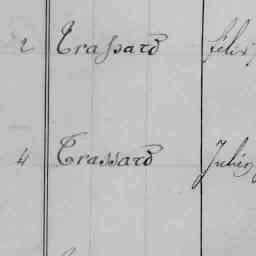 2 Trassard félix
4 Trassard Julien